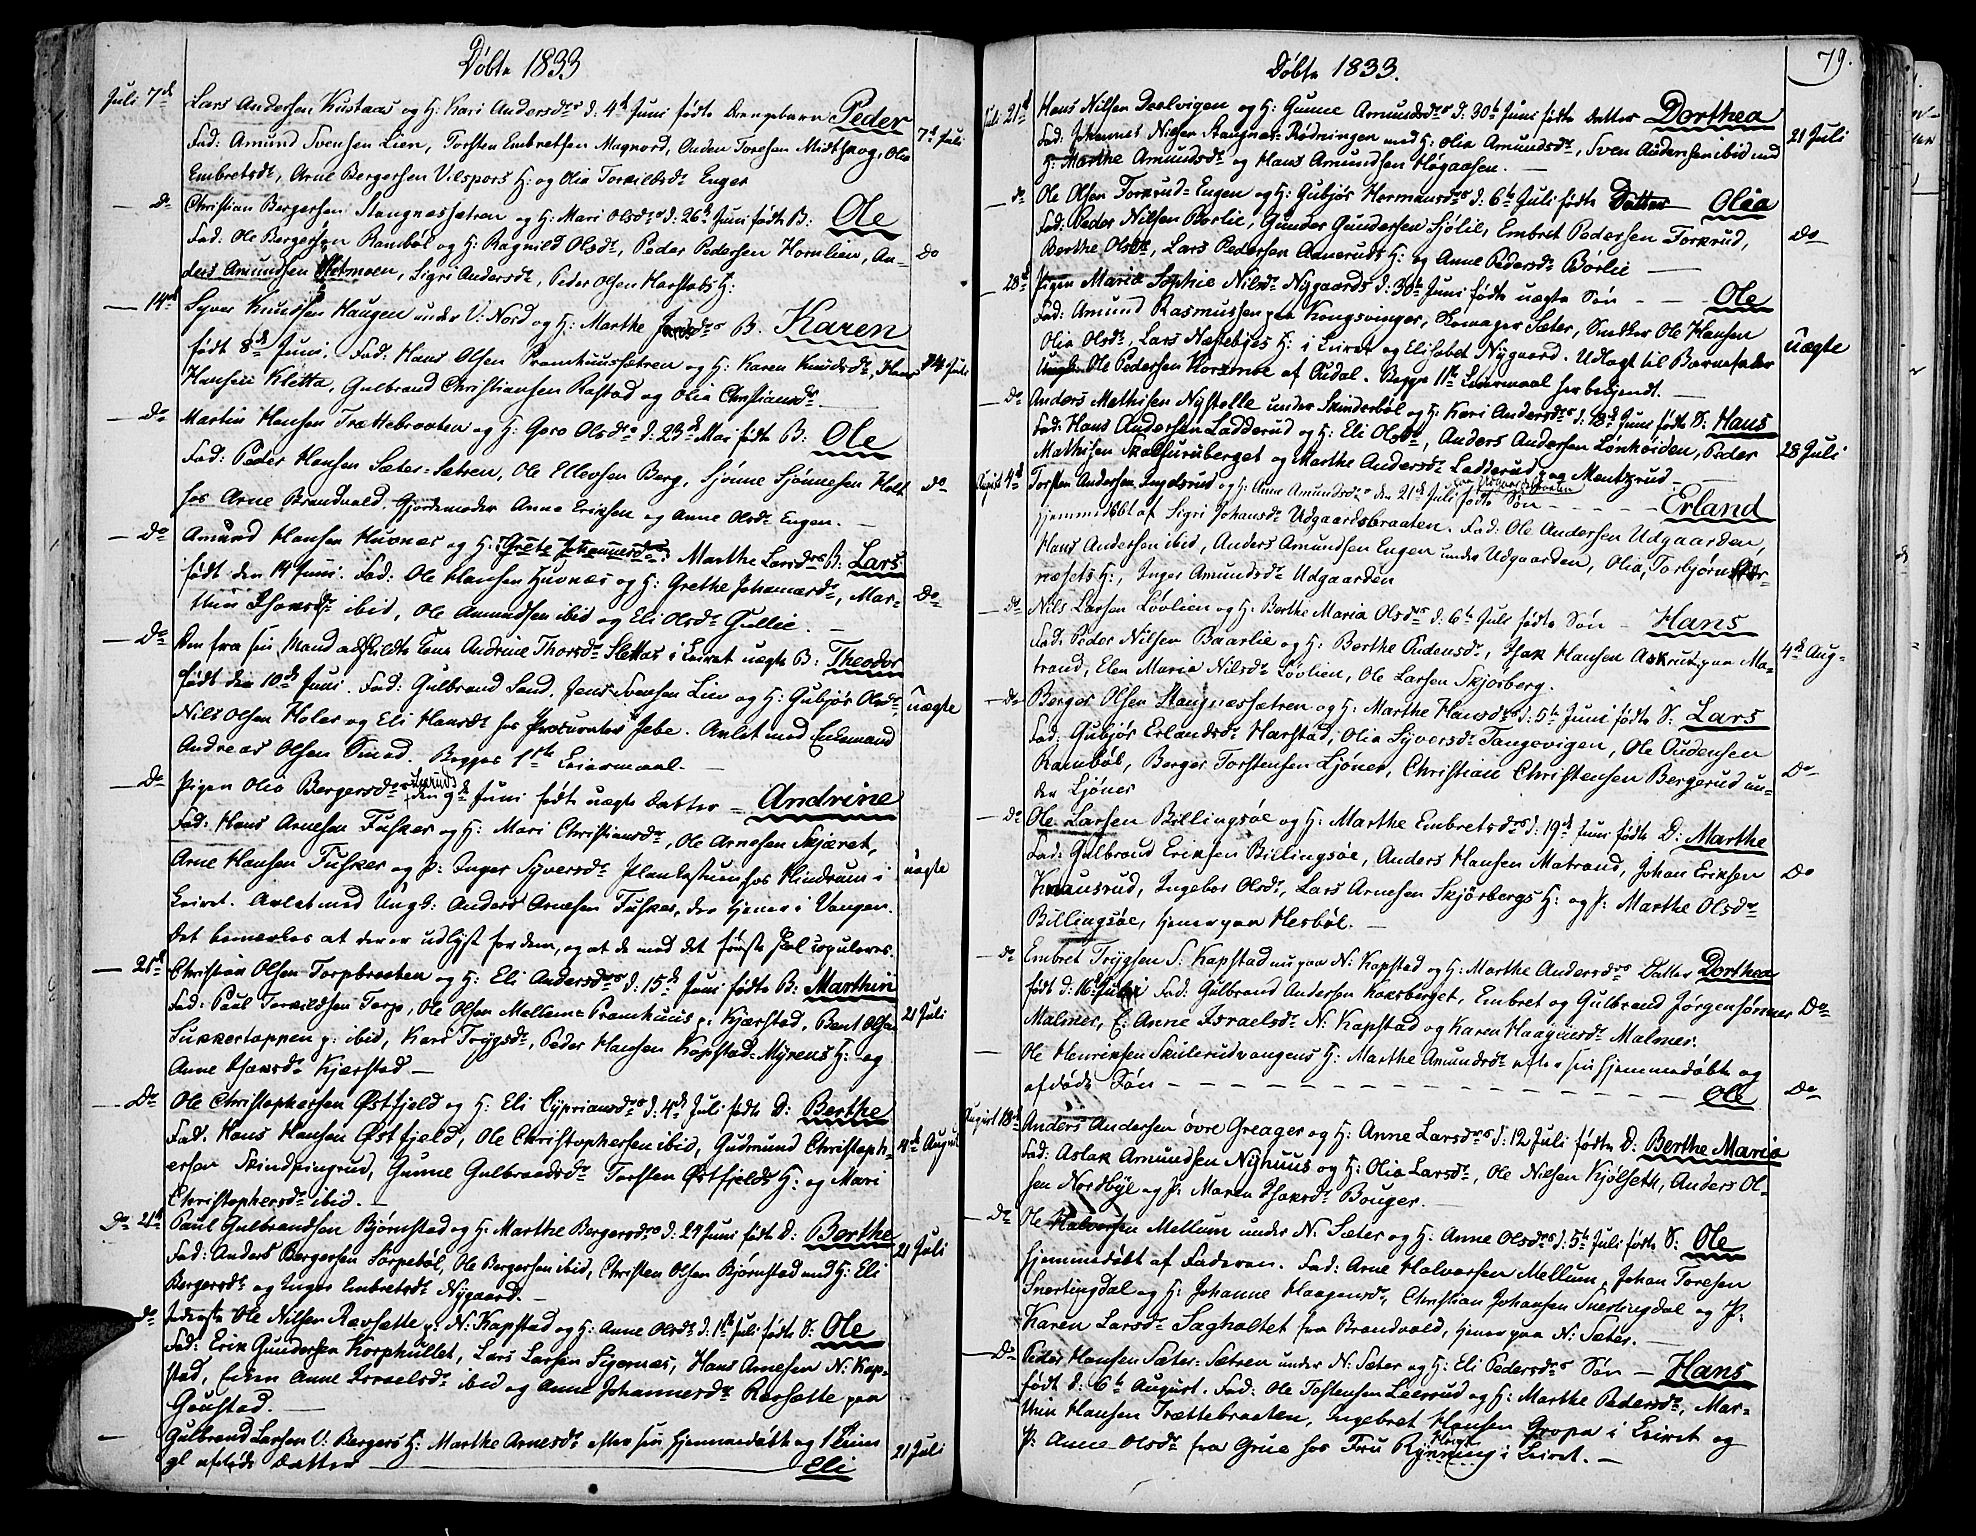 Døbte 1833
Juli 7de Lars Andersen Kustaas og H: Kari Andersdr d: 4de Juni fødte Drengebarn Peder
Fad: Amund Svensen Lien, Torsten Embretsen Magnord, Anden Toresen Midtskog, Olia 7de Juli
Embretsdr, Arne Bergersen Vilspors H: og Olia Torkildsdr Enger
Do Christian Bergersen Stangnessætren og H: Mari Olsdr d: 26de Juni fødte B: Ole
Fad: Ole Bergersen Rambøl og H: Ragnild Olsdr, Peder Pedersen Hornlien, An- Do
ders Amundsen Moen, Sigri Andersdr, Peder Olsen Harstads H:
14de Syver Knudsen Haugen under V: Nord og H: Marthe B. Karen
født 8de Juni. Fad: Hans Olsen Pramhuussætren og H: Karen Knudsdr, Hans 14 Juli
Hansen Kletta, Gulbrand Christiansen Rastad og Olia Christiansdr
Do Martin Hansen Trættebraaten og H: Goro Olsdr d: 23de Mai fødte B: Ole
Fad: Peder Hansen Sæter-Sætren, Ole Ellevsen Berg, Sjønne Sjønnesen Holt Do
hos Arne Brandvold. Gjordemoder Anne Eriksen og Anne Olsdr Engen.
Do Amund Hansen Huvnæs og H: (Grete Johannesdr) Marthe Larsdr B: Lars
født den 14 Juni. Fad: Ole Hansen Huvnæs og H: Grethe Johannesdr, Mar- Do
thin ibid, Ole Amundsen ibid og Eli Olsdr Gullie.
Do Den fra sin Mand adskildte Kone Andrine Thorsdr Slettas i Leiret uægte B: Theodor
født den 10de Juni. Fad: Gulbrand Sand, Jens Svensen Lien og H: Gubjør Olsdr, uægte
Nils Olsen Holer og Eli Hansdr hos Procurator Jebe. Avlet med Enkemand
Andreas Olsen Smed. Begges 1ste Leiermaal.
Do Pigen Olia Bergersdr den 9de Juni fødte uægte Datter Andrine
Fad: Hans Arnesen Fusker og H: Mari Christiansdr, Ole Arnesen Skjæret,
Arne Hansen Fusker og P: Inger Syversdr Plankestuen hos Hindrum i uægte
Leiret. Avlet med Ungk: Anders Arnesen Fusker, der tjener i Vangen.
Det bemærkes at der er udlyst for dem, og at de med det første skal copuleres.
21de Christian Olsen Torpbraaten og H: Eli Andersdr d: 15de Juni fødte B: Marthin
Fad: Paul Torkildsen Torp, Ole Olsen Mellem-Pramhuus p: Kjærstad, Bent Olsen 21 Juli
Sukkertoppen p: ibid, Kari Trygsdr, Peder Hansen Kopstad-Myrens H: og
Anne Isaksdr Kjærstad
Do Ole Christophersen Østfjeld og H: Eli Cypriansdr d: 4de Juli fødte D: Berthe
Fad. Hans Hansen Østfjeld, Ole Christophersen ibid, Gudmund Christoph- 4de August
ersen Skindpingrud, Gunne Gulbrandsdr Torsten Østfjelds H: og Mari
Christophersdr ibid.
Do 21de Paul Gulbrandsen Bjørnstad og H: Marthe Bergersdr d: 29 Juni fødte D: Berthe
Fad: Anders Bergersen Torpebøl, Ole Bergersen ibid, Christen Olsen Bjørnstad med H: Eli 21 Juli
Bergersdr og Inger Embretsdr Nygaard.
Do Inderste Ole Nilsen Ravsætte p: N: Kopstad og H: Anne Olsdr d: 1ste Juli fødte S: Ole
Fad: Erik Gundersen Korphullet, Lars Larsen Sigernæs, Hans Arnesen N: Kop-
stad, Enken Anne Israelsdr ibid og Anne Johannesdr Ravsætte paa
Goustad.
Gulbrand Larsen V: Bergers H: Marthe Arnesdr efter sin hjemmedøbt og 1 Time 21 Juli
gl afdøde Datter Eli
79.
Døbte 1833.
Juli 21de Hans Nilsen Deelvigen og H: Gunne Amundsdr d: 30te Juni fødte Datter Dorthea
Fad: Johannes Nilsen Stangnæs-Rødningen med H: Olia Amundsdr, Sven Audensen ibid med 21 Juli
H: Marthe Amundsdr og Hans Amundsen Høgaasen.
Do Ole Olsen Torkrud-Engen og H: Gubjør Hermansdr d: 6te Juli fødte Datter Olea
Fad: Peder Nilsen Børlie, Gunder Gundersen Sjølie, Embret Pedersen Torkrud, Do
Berthe Olsdr, Lars Pedersen Aaneruds H: og Anne Pedersdr Børlie
28de Pigen Maria Sophie Nilsdr Nygaards d: 30te Juni fødte uægte Søn Ole
Fad: Amund Rasmussen paa Kongsvinger, Skomager Sæter, Snedker Ole Hansen
Olia Olsdr, Lars Næstebyes H: i Leiret og Elisabet Nygaard. Udlagt til Barnefader uægte
Ungk: Ole Pedersen Korsmoe af Eidal. Begges 1ste Leiermaal herbeigendt.
Do Anders Mathisen Nystelle under Skinderbøl og H: Kari Andersdr d: 18de Juni fødte S: Hans
Fad: Hans Andersen Ladderud og H: Eli Olsdr, Anders Andersen Lønhøiden, Peder 28 Juli
Mathisen Skafuruberget og Marthe Andersdr Ladderud og Montzrud
August 4de Torsten Andersen Ingelsrud og H: Anne Amundsdr den 21de Juli fødte Søn Erland
hjemmedøbt af Sigri Johansdr Udgaardsbraaten. Fad: Ole Andersen Udgaarden,
Hans Andersen ibid, Anders Amundsen Engen under Udgaarden, Olia, Torbjørn
næsets H:, Inger Amundsdr Udgaarden
Do Nils Larsen Løvlien og H: Berthe Maria Olsdr d: 6te Juli fødte Søn Hans
Fad: Peder Nilsen Baarlie og H: Berthe Audensdr, Isak Hansen Askrud paa Ma- 4de Aug-
trand, Elen Maria Nilsdr Løvlien, Ole Larsen Skjørberg.
Do Berger Olsen Stangnessætren og H: Marthe Hansdr d: 5te Juni fødte S: Lars
Fad: Gubjør Erlandsdr Harstad, Olia Syversdr Tangevigen, Ole Audensen
Rambøl, Berger Torstensen Ljøner, Christian Christensen Bergerud un- Do
der Ljøner
Do Ole Larsen Billingsøe og H: Marthe Embretsdr d: 19de Juni fødte D: Marthe
Fad: Gulbrand Eriksen Billingsøe, Anders Hansen Matrand, Johan Eriksen Do
Knausrud, Ingebor Olsdr, Lars Arnesen Skjørbergs H: og P: Marthe Olsdr
Billingsøe, tjener paa Hesbøl.
Do Embret Trygsen S: Kopstad nu paa N: Kopstad og H: Marthe Andersdr Datter Dorthea
født d: 16de Juli Fad: Gulbrand Andersen Korsberget, Embret og Gulbrand Jørgensønner Do
Malmer, E: Anne Israelsdr N: Kopstad og Karen Haagensdr Malmer.
Ole Henriksen Skulerudvangens H: Marthe Amundsdr efter sin hjemmedøbte og
afdøde Søn Ole Do
August 18de Anders Andersen øvre Greager og H: Anne Larsdr d: 12 Juli fødte D: Berthe Maria
Fad: Aslak Amundsen Nyhuus og H: Olia Larsdr, Ole Nilsen Kjølseth, Anders Ol-
sen Nordbye og P: Maren Isaksdr Bouger.
Do Ole Halvorsen Mellum under N: Sæter og H: Anne Olsdr d: 5te Juli fødte S: Ole
hjemmedøbt af Faderen. Fad: Arne Halvorsen Mellum, Johan Toresen
Snertingdal og H: Johanne Haagensdr, Christian Johansen Snertingdal og P:
Karen Larsdr Sagholtet fra Brandvold, tjener paa N: Sæter.
Do Peder Hansen Sæter-Sætren under N: Sæter og H: Eli Pedersdr Søn Hans
født d: 6te August. Fad: Ole Tostensen Leerud og H: Marthe Pedersdr, Mar-
thin Hansen Trættebraaten, Ingebret Hansen Gropa i Leiret og
P: Anne Olsdr fra Grue hos Fru Rynning i Leiret.